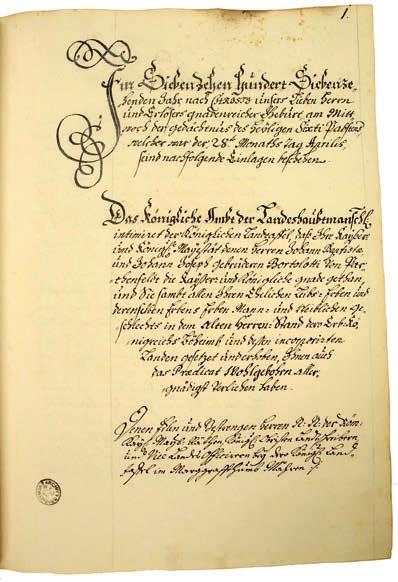 1.
Im Siebenzehen hundert Siebenze-
henden Jahr nach CHRISTI unsers Lieben Herrn
und Erlösers gnadenreicher Geburt am Mitt-
woch der gedächtnus des heyligen Sixti Pabstens
welcher war der 28te Monaths Tag Aprilis,
seind nachfolgende Einlagen beschehen.
Das Königliche Ambt der Landeshaubtmanschfft.
intimiret der Königlichen Landtaffel, daß Ihre Kayser-
und Königl. Mayestät denen Herren Johann Baptistae
und Johann Joseph Gebrüdern Bortolotti von Par-
thenfeldt die Kayser- und Königliche gnade gethan,
und Sie sambt allen Ihren Ehelichen Leibs-Erben und
derenselben Erbens Erben Mann- und Weiblichen ge-
schlechts in dem alten Herren-Stand dero Erb-Kö-
nigreichs Böheimb und dessen incorporirten
Landen gesetzet und erhoben, Ihnen auch
das Praedicat Wohlgebohrn aller-
gnädigst Verliehen haben.
Denen Edlen und Vestrengen Herren N: N: der Röm:
Kayl: Königl: Obristen Landschreibern
und Vice Landts Officirern bey der Königl: Land-
taffel im Marggraffthumb Mähren